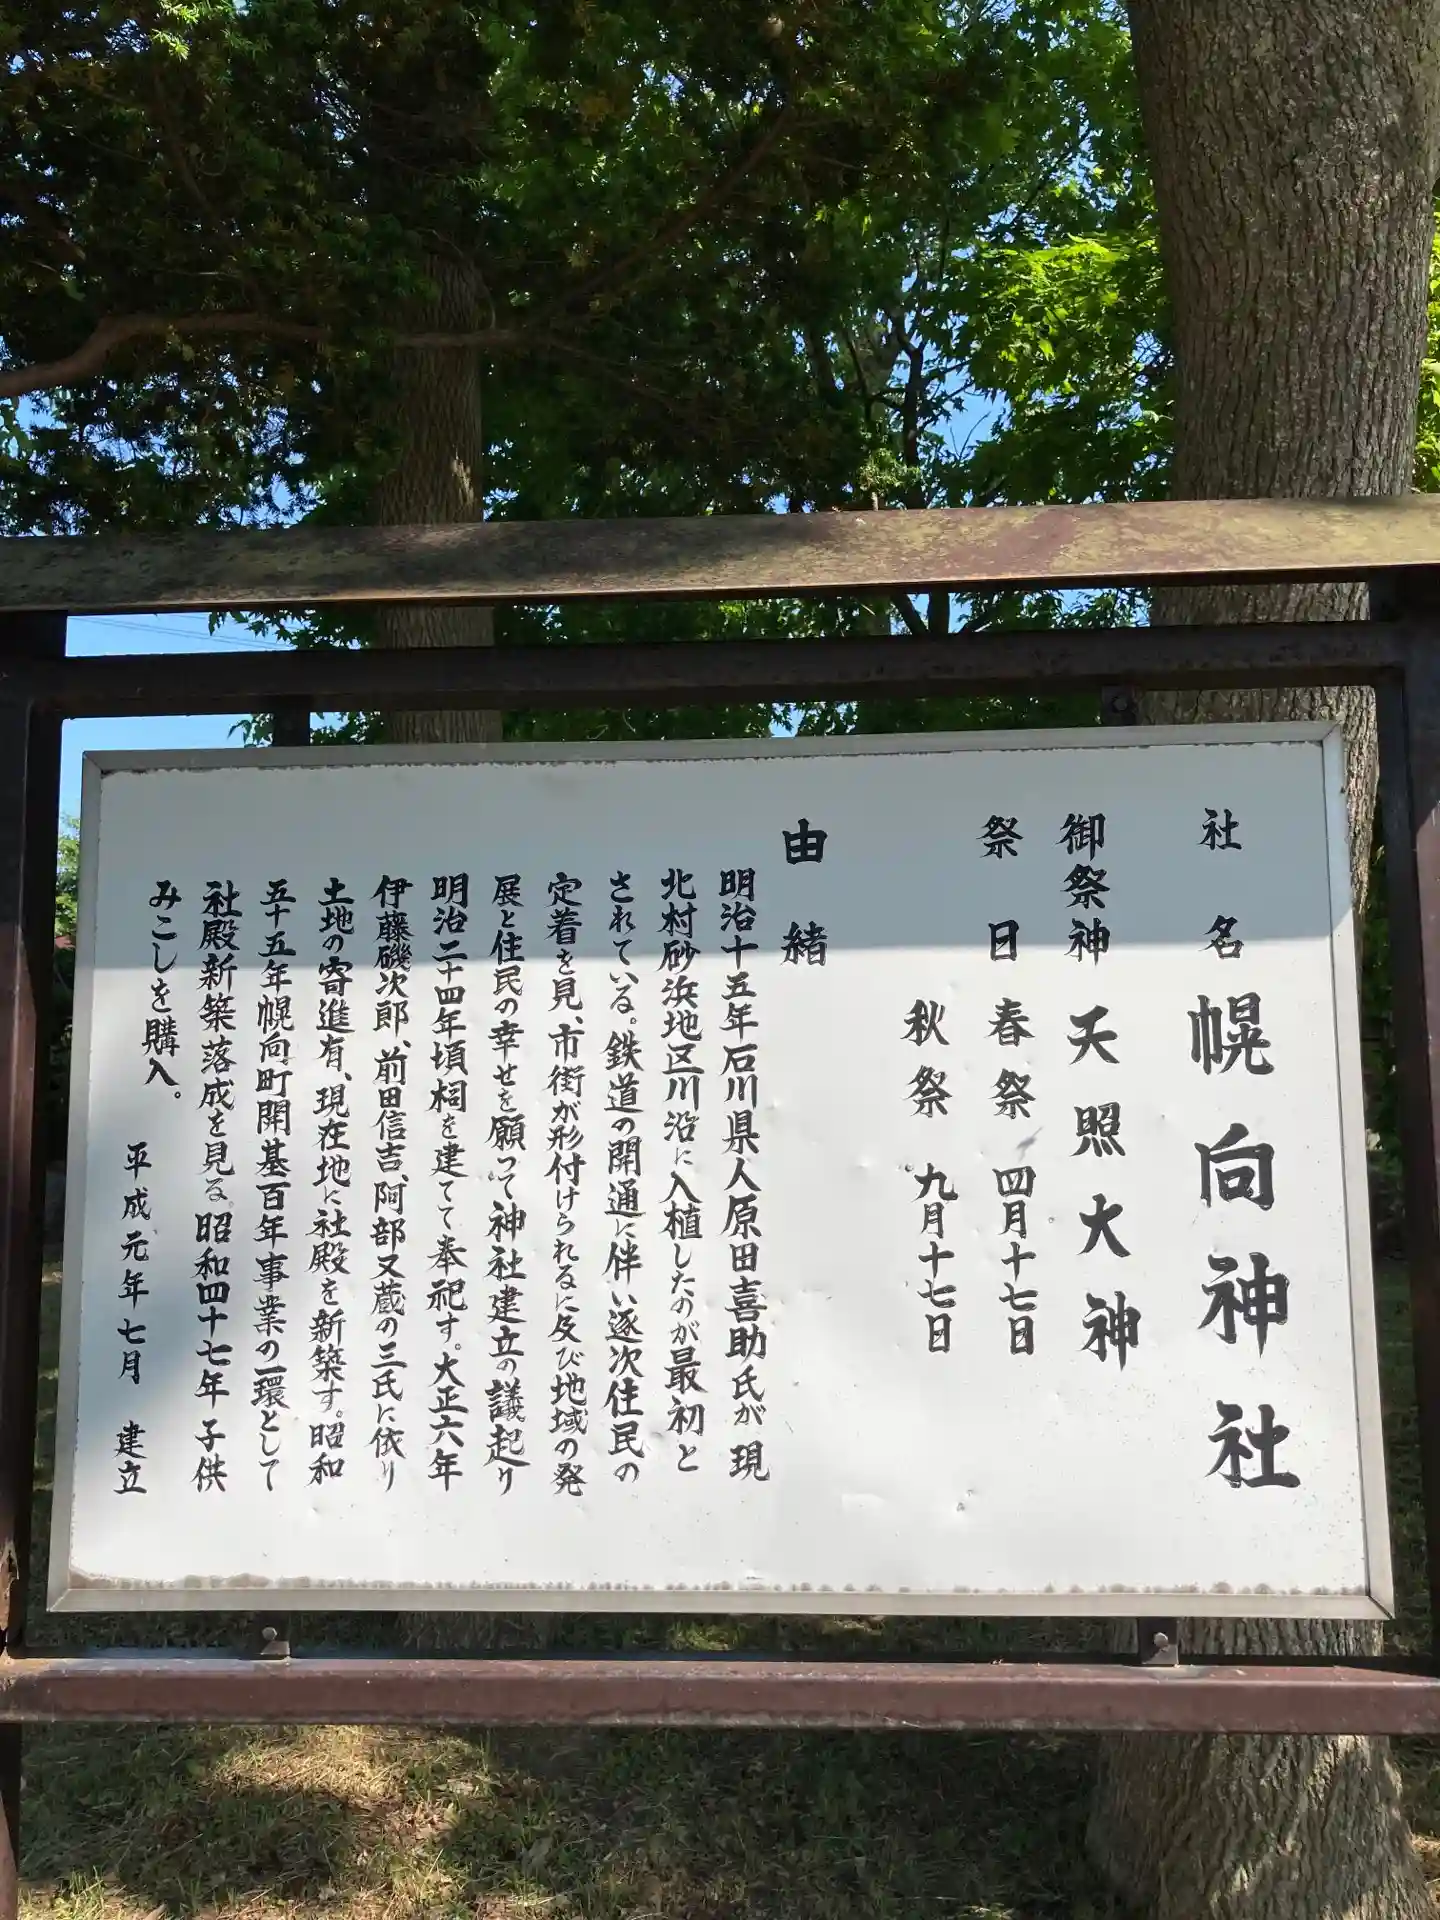 社名 幌向神社
御祭神 天照大神
祭日 春祭 四月十七日
秋祭 九月十七日
由緒
明治十五年石川県人原田喜助氏が現
北村砂浜地区川沿に入植したのが最初と
されている。鉄道の開通に伴い逐次住民の
定着を見、市街が形付けられるに及び地域の発
展と住民の幸せを願って神社建立の議起り
明治二十四年頃祠を建てて奉祀す。大正六年
伊藤磯次郎、前田信吉、阿部又蔵の三氏に依り
土地の寄進有、現在地に社殿を新築す。昭和
五十五年幌向町開基百年事業の一環として
社殿新築落成を見る。昭和四十七年子供
みこしを購入。
平成元年七月 建立